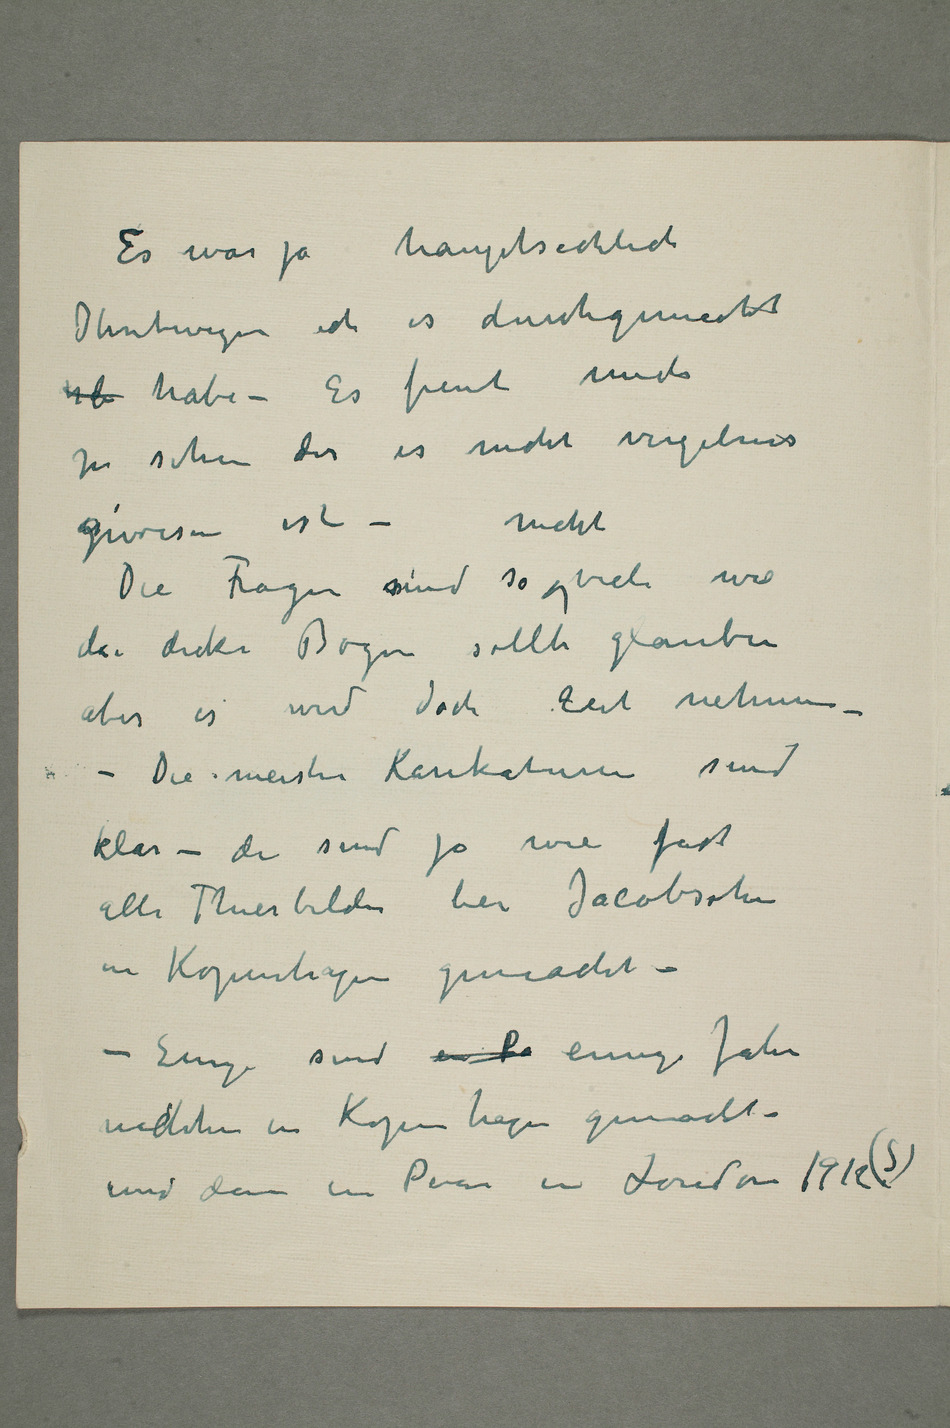 Es war ja hauptsechlich
Ihretwegen ich es durchgemacht
habe – Es freut mich
zu sehen das es nicht vergebens
gewesen ist – nicht
Die Fragen sind so viele wie
die dicke Bogen sollte glauben
aber es wird doch Zeit nehmen –
– Die meisten Karikaturen sind
klar – die sind ja wie fast
alle Thierbilder bei Jacobsohn
in Kopenhagen gemacht –
– Einige sind in Pa einige Jahr
nachher in Kopenhagen gemacht –
und dann ein Paar in London 1912 (?)